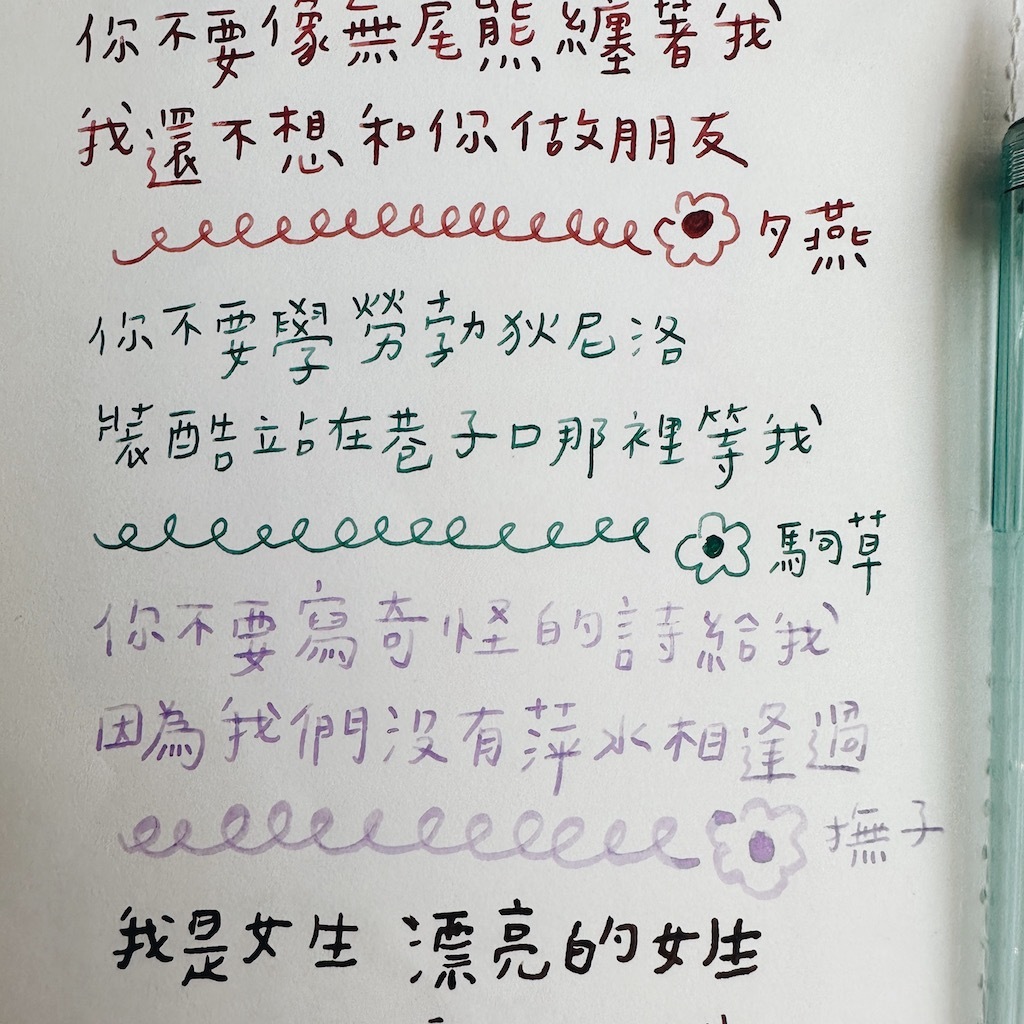 你不要像無尾熊纏著我
我還不想和你做朋友
夕燕
你不要學勞勃狄尼洛
裝酷站在巷子口那裡等我
駒草
你不要寫奇怪的詩給我
因為我們沒有萍水相逢過
撫子
我是女生 漂亮的女生